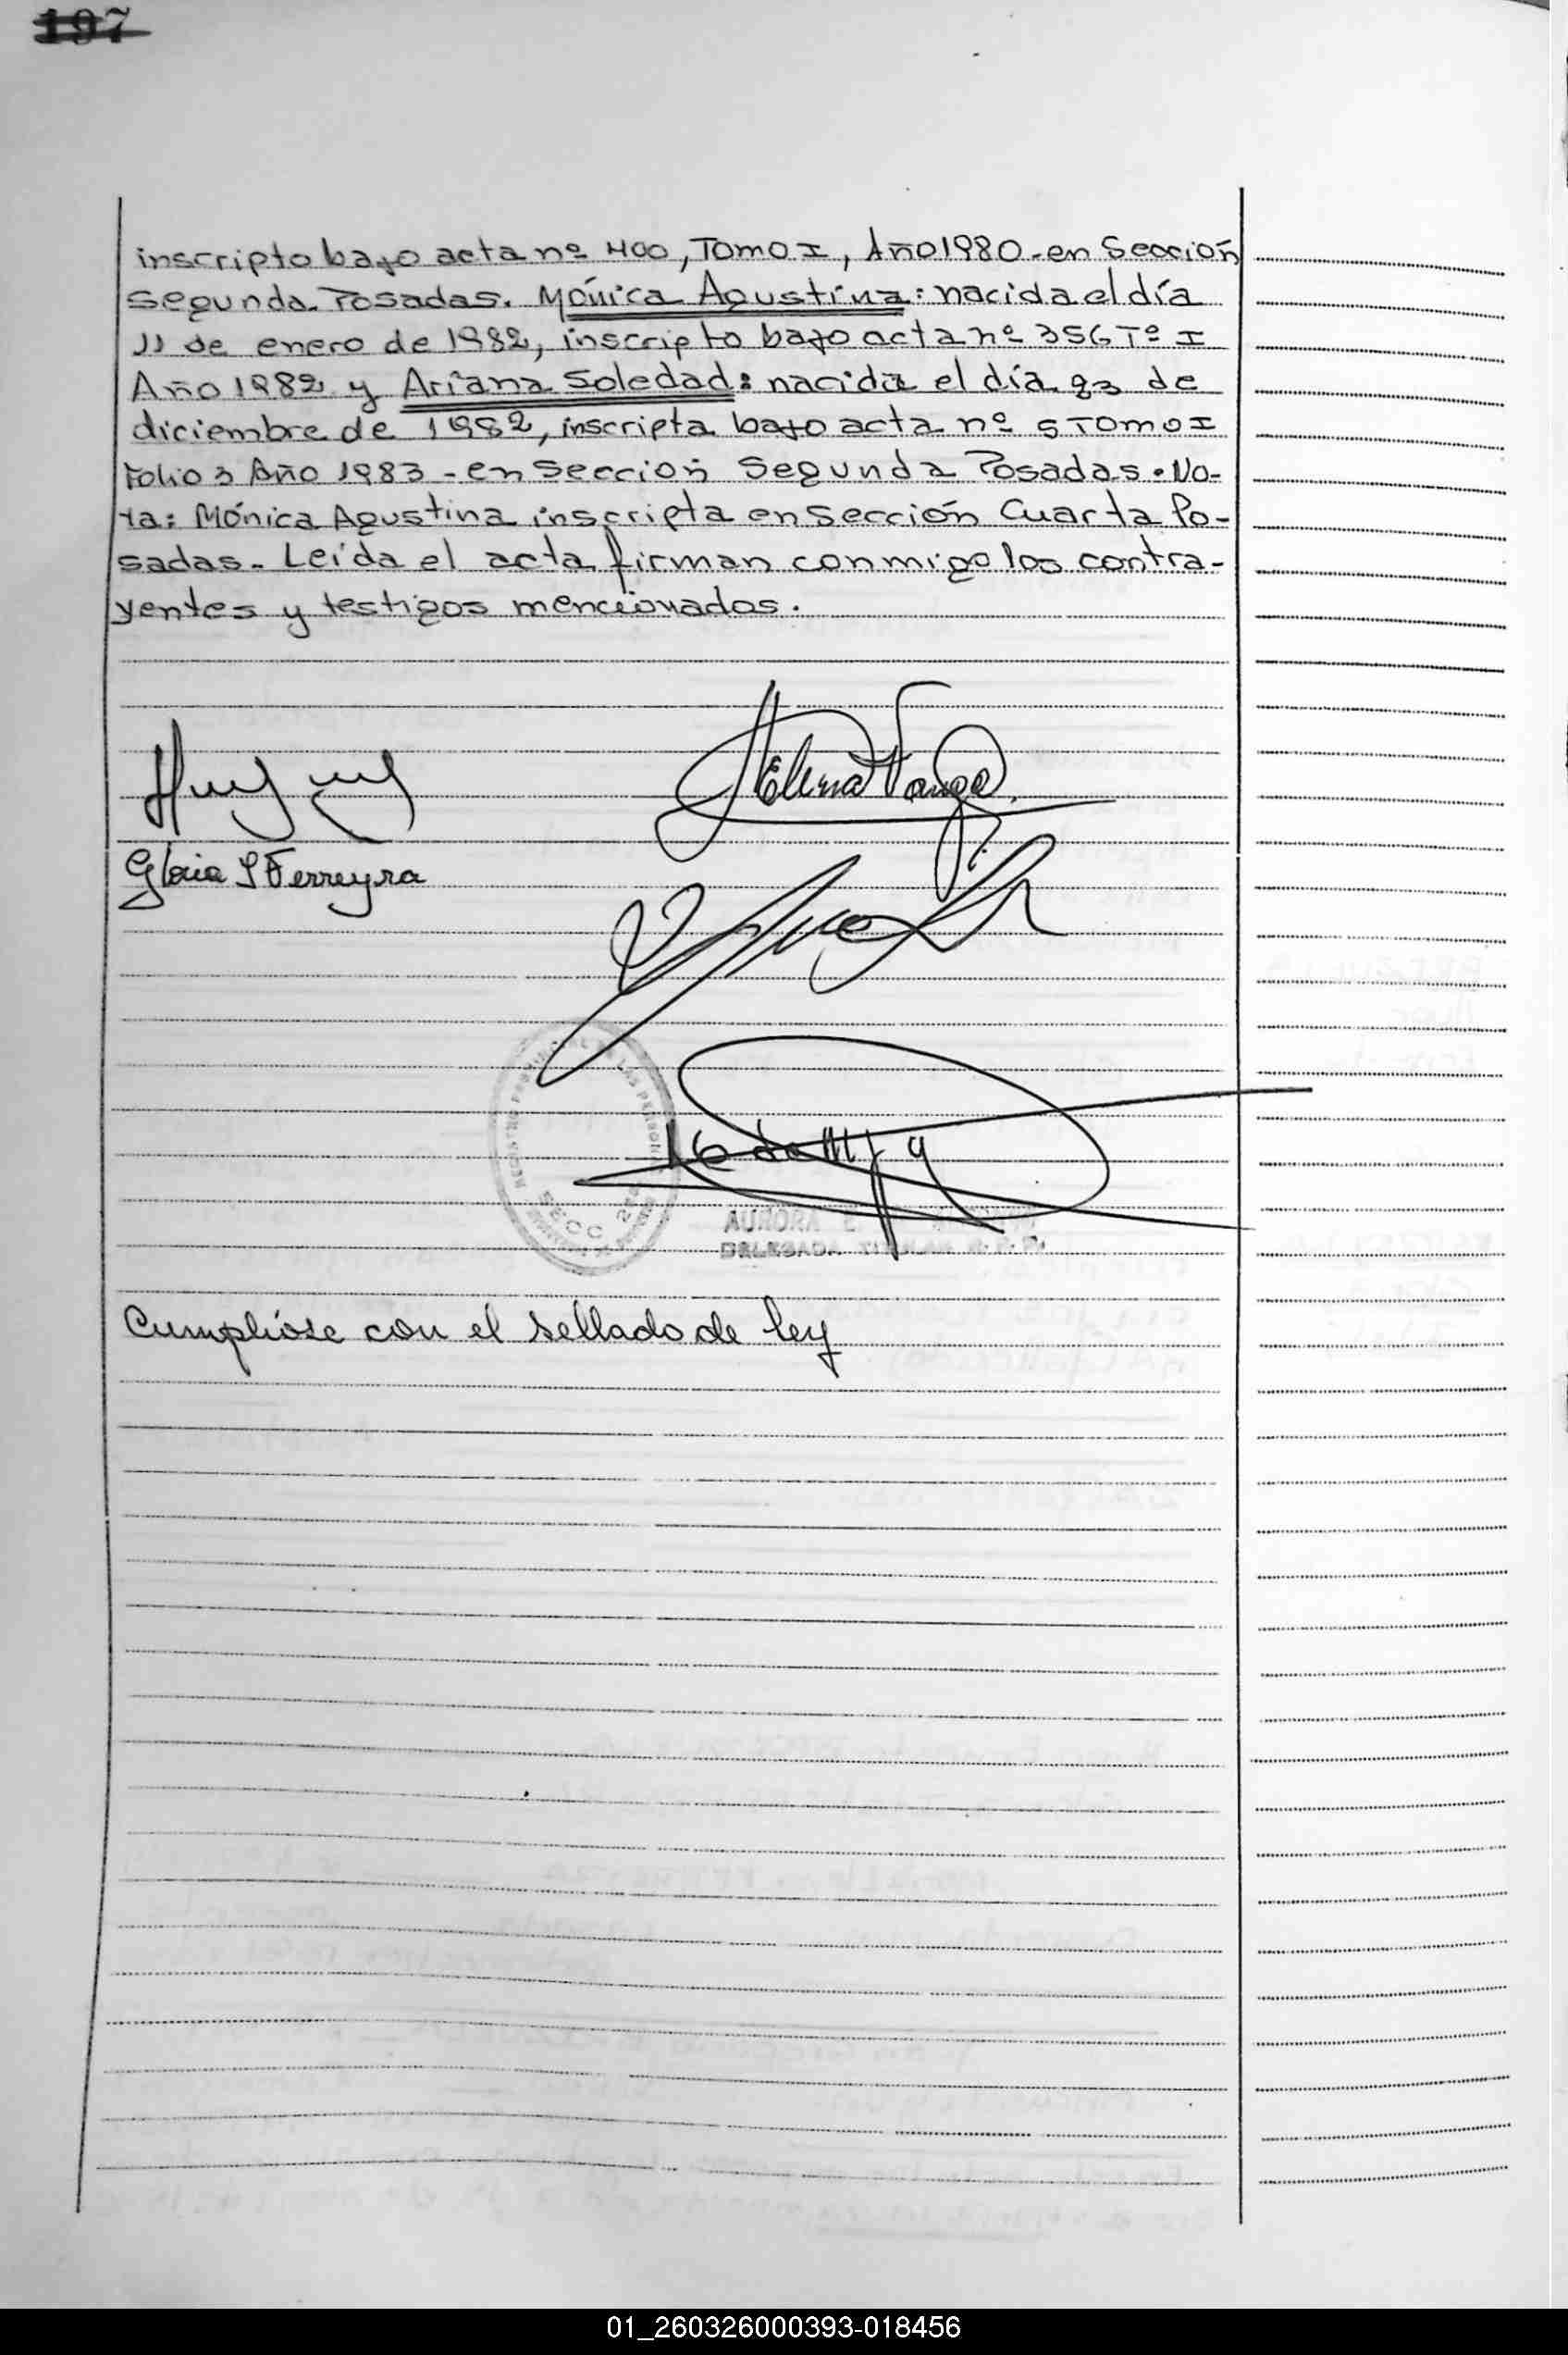 197
inscripto bajo acta nº 400, Tomo I, Año 1980.-en Sección
Segunda Posadas. Mónica Agustina: nacida el día
11 de enero de 1982, inscripto bajo acta nº 356 Tº I
Año 1982 y Ariana Soledad: nacida el día 23 de
diciembre de 1982, inscripta bajo acta nº 5 Tomo I
Folio 3 Año 1983 - en Sección Segunda Posadas. No-
ta: Mónica Agustina inscripta en Sección Cuarta Po-
sadas.- Leída el acta firman conmigo los contra-
yentes y testigos mencionados.
Elena
Gloria I Ferreyra
SECC
AURORA
DELEGADA TITULAR
Cumplióse con el sellado de ley
01_260326000393-018456